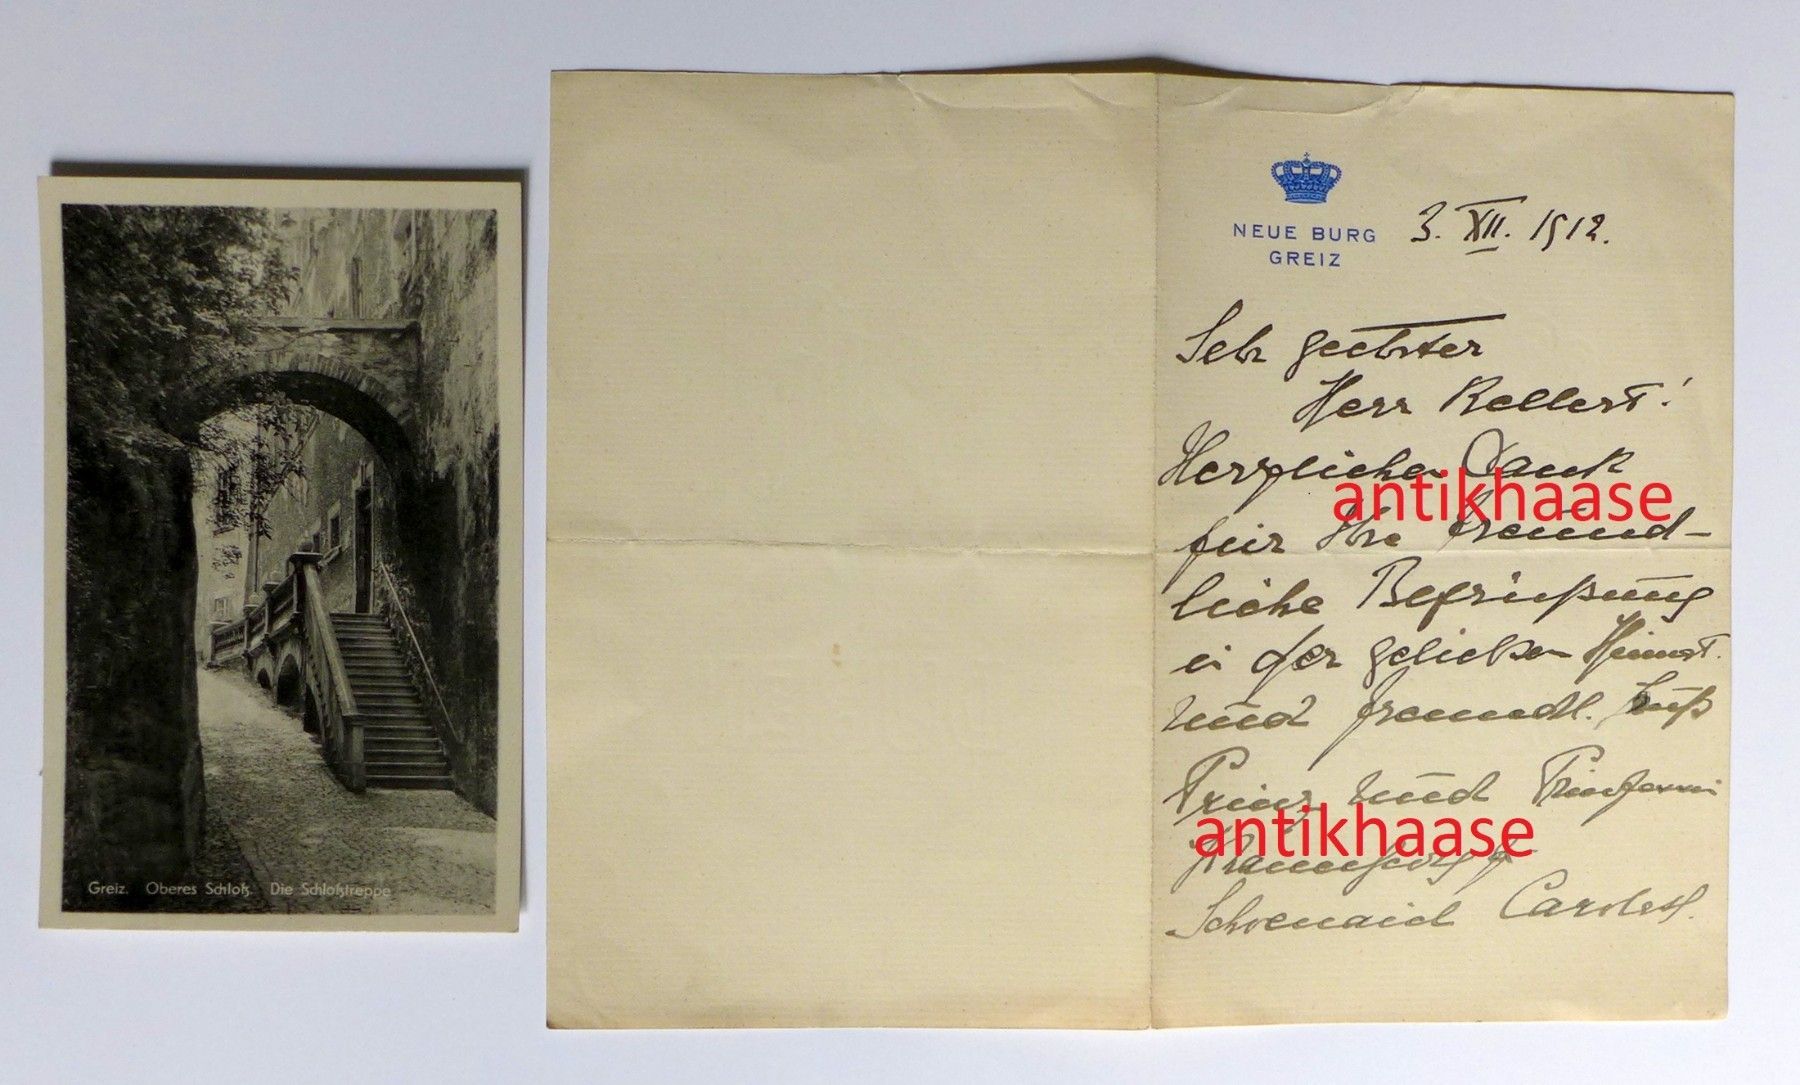 Greiz. Oberes Schloß. Die Schloßtreppe
NEUE BURG
GREIZ
3. XII. 1912.
Sehr geehrter
Herr Kellert!
Herzlichen Dank
für Ihre freund-
liche Begrüßung
in der geliebten Heimat
und freundl. Gruß
Prinz und Prinzessin
Schoenaich Carolath.
antikhaase
antikhaase